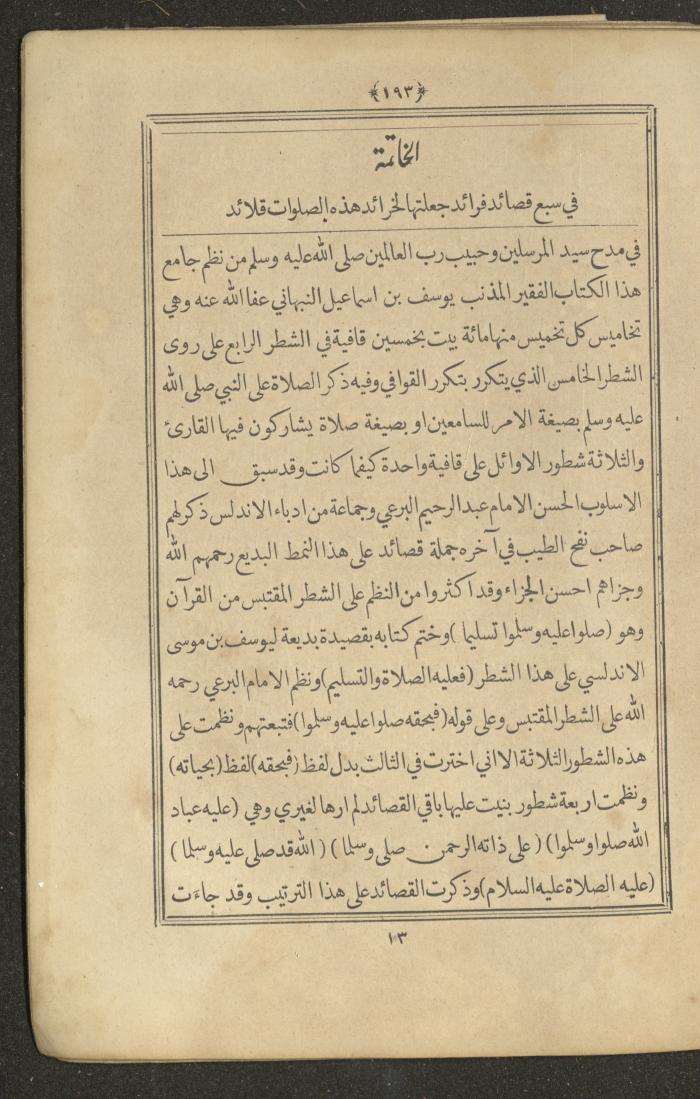 ﴿١٩٣﴾
الخاتمة
في سبع قصائد فرائد جعلتها لخرائد هذه الصلوات قلائد
في مدح سيد المرسلين وحبيب رب العالمين صلى الله عليه وسلم من نظم جامع
هذا الكتاب الفقير المذنب يوسف بن اسماعيل النبهاني عفا الله عنه وهي
تخاميس كل تخميس منها مائة بيت بخمسين قافية في الشطر الرابع على روى
الشطر الخامس الذي يتكرر بتكرر القوافي وفيه ذكر الصلاة على النبي صلى الله
عليه وسلم بصيغة الامر للسامعين او بصيغة صلاة يشاركون فيها القارئ
والثلاثة شطور الاوائل على قافية واحدة كيفما كانت وقد سبق الى هذا
الاسلوب الحسن الامام عبد الرحيم البرعي وجماعة من ادباء الاندلس ذكر لهم
صاحب نفح الطيب في آخره جملة قصائد على هذا النمط البديع رحمهم الله
وجزاهم احسن الجزاء وقد اكثروا من النظم على الشطر المقتبس من القرآن
وهو (صلوا عليه وسلموا تسليما) وختم كتابه بقصيدة بديعة ليوسف بن موسى
الاندلسي على هذا الشطر (فعليه الصلاة والتسليم) ونظم الامام البرعي رحمه
الله على الشطر المقتبس وعلى قوله (فبحقه صلوا عليه وسلموا) فتبعتهم ونظمت على
هذه الشطور الثلاثة الا اني اخترت في الثالث بدل لفظ (فبحقه) لفظ (بحياته)
ونظمت اربعة شطور بنيت عليها باقي القصائد لم ارها لغيري وهي (عليه عباد
الله صلوا وسلموا) (على ذاته الرحمن صلى وسلما) (الله قد صلى عليه وسلما)
(عليه الصلاة عليه السلام) وذكرت القصائد على هذا الترتيب وقد جاءت
١٣